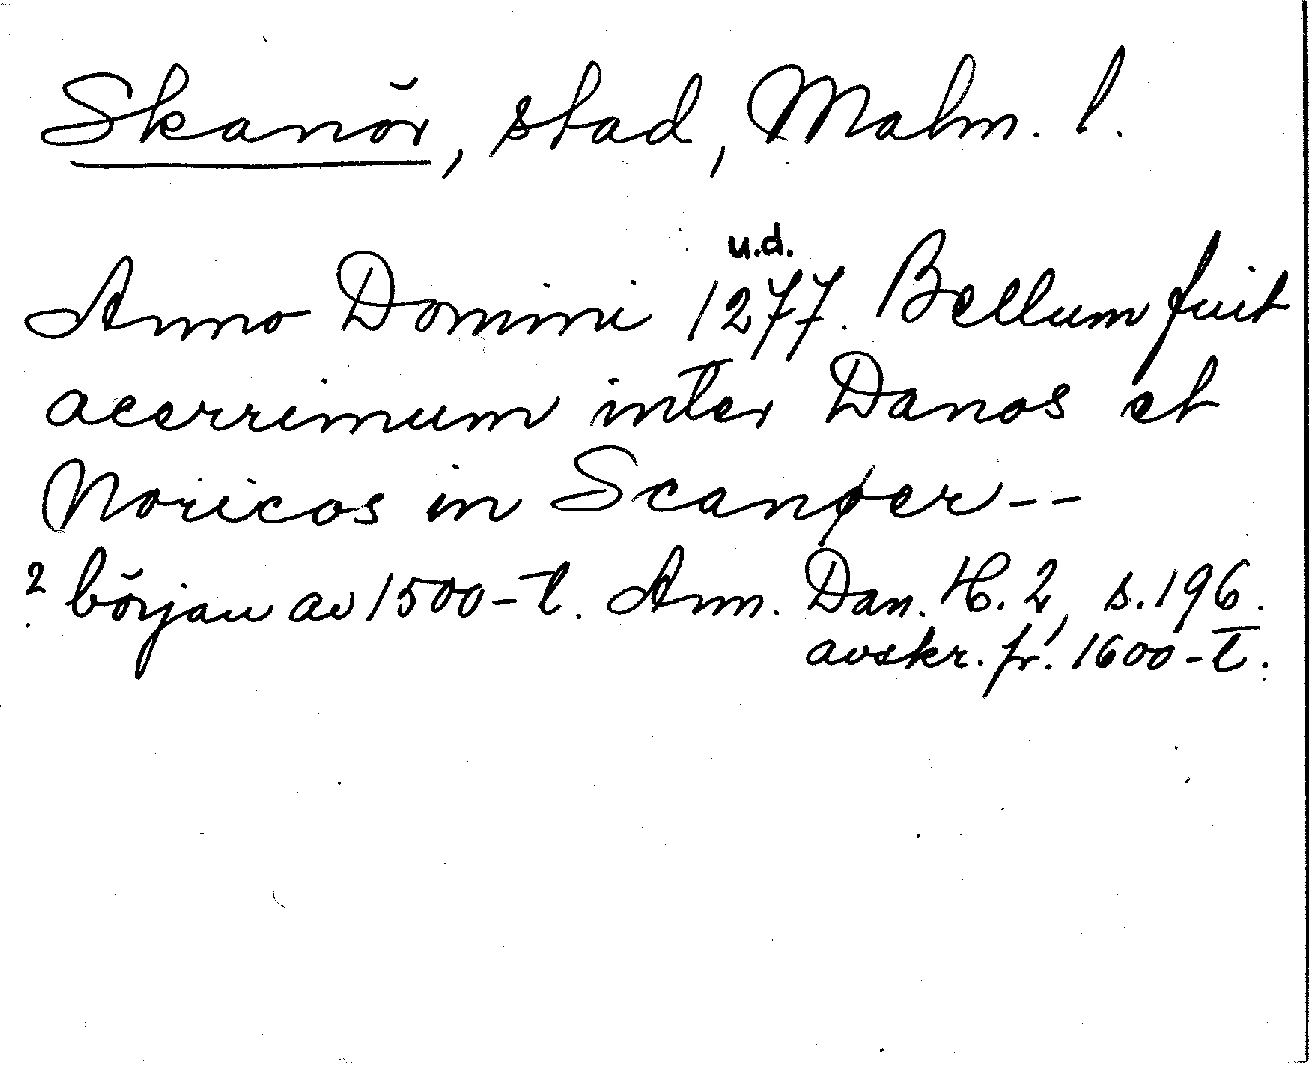 Skanör, stad, Malm. l.
u.d.
Anno Domini 1277. Bellum fuit
acerrimum inter Danos et
Noricos in Scanøer--
? början av 1500-t. Ann. Dan. H. 2, s. 196.
avskr. fr. 1600-t.